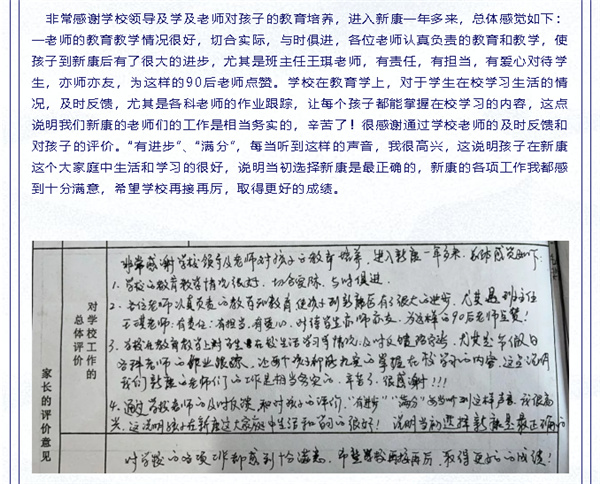 非常感谢学校领导及学及老师对孩子的教育培养，进入新康一年多来，总体感觉如下：
一老师的教育教学情况很好，切合实际，与时俱进，各位老师认真负责的教育和教学，使
孩子到新康后有了很大的进步，尤其是班主任王琪老师，有责任，有担当，有爱心对待学
生，亦师亦友，为这样的90后老师点赞。学校在教育学上，对于学生在校学习生活的情
况，及时反馈，尤其是各科老师的作业跟踪，让每个孩子都能掌握在校学习的内容，这点
说明我们新康的老师们的工作是相当务实的，辛苦了！很感谢通过学校老师的及时反馈和
对孩子的评价。“有进步”、“满分”，每当听到这样的声音，我很高兴，这说明孩子在新康
这个大家庭中生活和学习的很好，说明当初选择新康是最正确的，新康的各项工作我都感
到十分满意，希望学校再接再厉，取得更好的成绩。
家长的评价意见
对学校工作的
总体评价
非常感谢学校领导及老师对孩子的教育培养，进入新康一年多来，总体感觉如下：
1. 学校的教育教学情况很好，切合实际，与时俱进。
2. 各位老师认真负责的教育和教育使孩子到新康后有了很大的进步，尤其是班主任
王琪老师，有责任，有担当，有爱心，对待学生亦师亦友，为这样的90后老师点赞！
3. 学校在教育教学上对学生在校生活学习等情况，及时反馈，尤其是节假日
各科老师的作业跟踪，让每个孩子都能扎实的掌握在校学习的内容，这点说明
我们新康的老师们的工作是相当务实的，辛苦了，很感谢!!!
4. 通过学校老师的及时反馈和对孩子的评价，“有进步”“满分”每当听到这样声音，我很高
兴，这说明孩子在新康这大家庭中生活和学习的很好！说明当初选择新康是最正确的
对学校的各项工作都感到十分满意，希望学校再接再厉，取得更好的成绩！